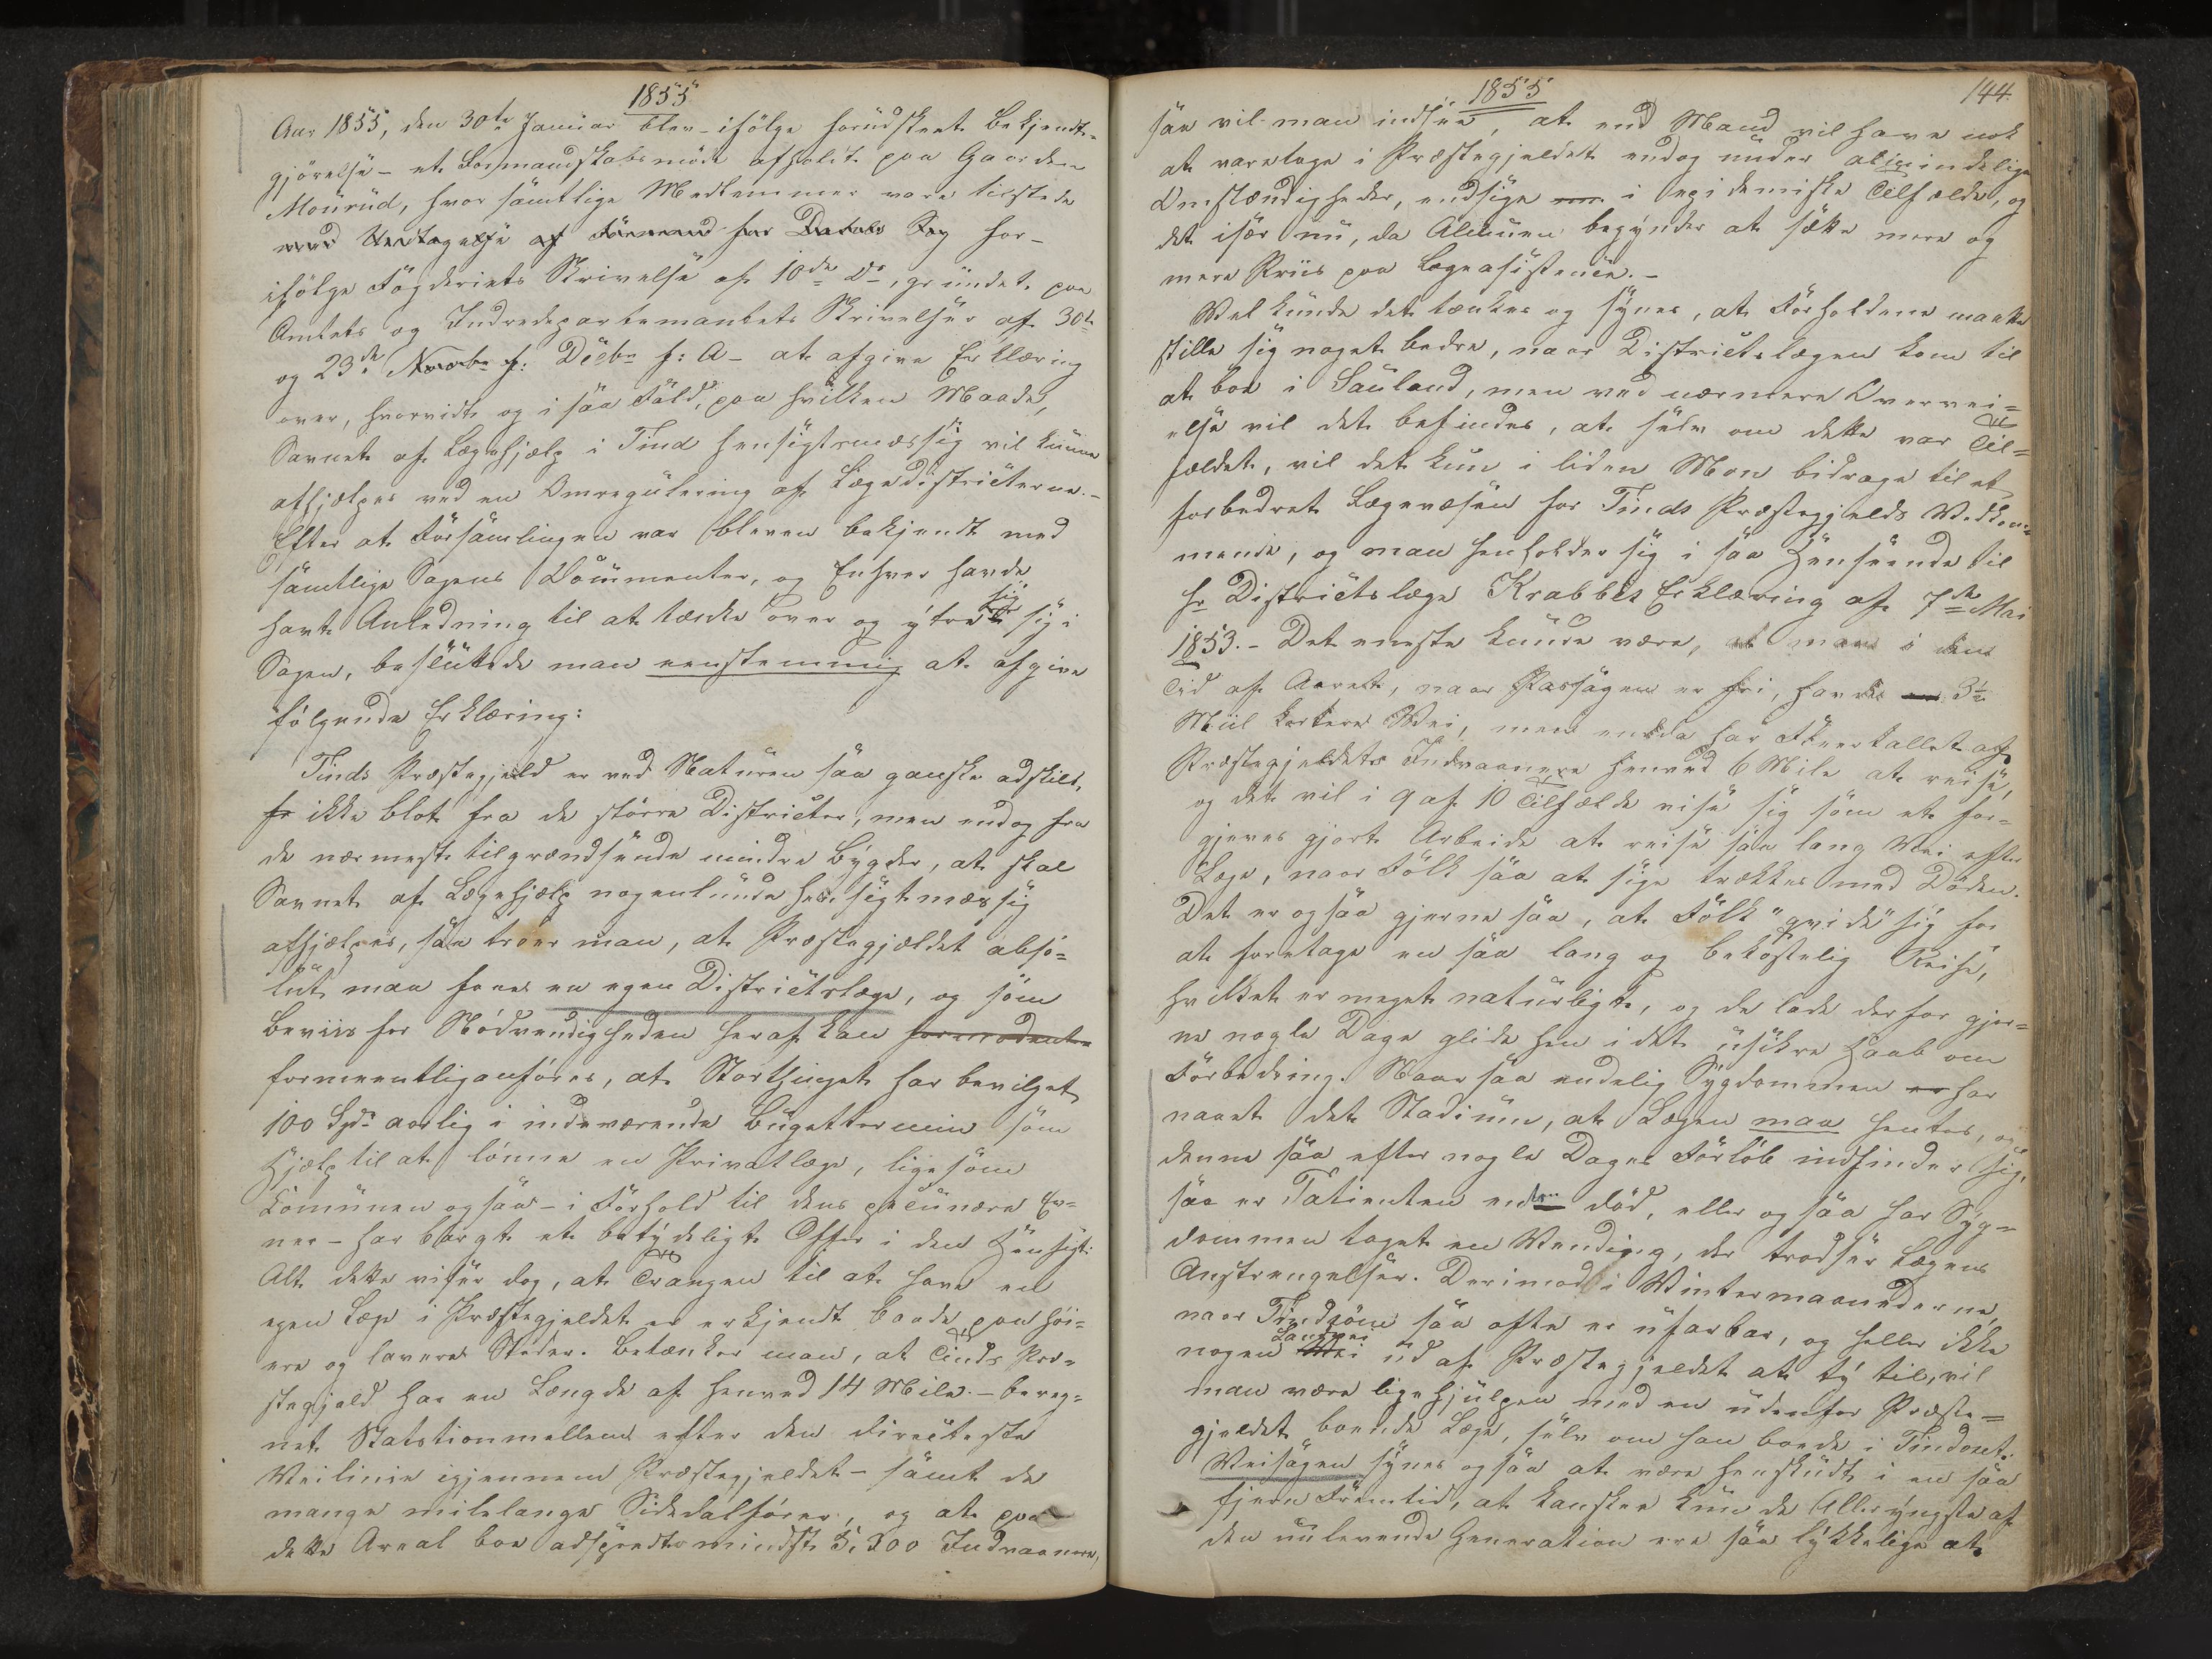 1855
Aar 1855, den 30te Januar blev - ifølge forudskeet Bekjendt-
gjørelse - et Formandskabsmøde afholdt paa Gaarden
Mourud, hvor samtlige Medlemmer vare tilstede
med Undtagelse af Formand for
ifølge Fogderiets Skrivelse af 10de ds, grundet paa
Amtets og Indredepartementets Skrivelser af 30te
og 23de Novbr f: Decbr f: A - at afgive Erklæring
over, hvorvidt og i saa Fald, paa hvilken Maade,
Savnet af Lægehjælp i Tind hensigtsmæssig vil kunne
afhjælpes ved en Omregulering af Lægedistricterne.-
Efter at Forsamlingen var bleven bekjendt med
samtlige Sagens Documenter, og Enhver havde
havt Anledning til at tænke over og ytre sig i
Sagen, besluttede man eenstemmig at afgive
følgende Erklæring:
Tinds Præstegjeld er ved Naturen saa ganske adskilt,
fr ikke blot fra de større Districter, men endog fra
de nærmest tilgrændsende mindre Bygder, at skal
Savnet af Lægehjælp nogenlunde hensigtmæssig
afhjælpes, saa troer man, at Præstegjældet abso=
lut maa faae en egen Districtslæge, og som
Beviis for Nødvendigheden heraf kan formodent
formeentlig anføres, at Storthinget har bevilget
100 Spd aarlig i indeværende Bugettermin som
Hjælp til at lønne en Privatlæge, ligesom
Comunen ogsaa - i Forhold til dens pecunære Ev=
ner - har bragt et betydeligt Offer i den Hensigt.
Alt dette viser dog, at Trangen til at have en
egen Læge i Præstegjeldet er erkjendt baade paa høi=
ere og lavere Steder. Betænker man, at Tinds Præ=
stegjeld har en Længde af henved 14 Mile. - bereg=
net Statstionmellem efter den directeste
Veilinie igjennem Præstegjeldet - samt de
mange milelange Sidedalfører, og at paa
dette Areal boe adspredte mindst 3,300 Indvaanere,
1855
144.
saa vil man indsee, at end Mand vil have nok
at varetage i Præstegjeldet endog under almindelige
Omstændigheder, endsige i epidemiske Tilfælde, og
det især nu, da Almuen begynder at sætte mere og
mere Priis paa Lægeasistence.-
Vel kunde det tænkes og synes, at Forholdene maatte
stille sig noget bedre, naar Districtslægen kom til
at boe i Sauland, men ved nærmere Overvei=
else vil det befindes, at selv om dette var Til=
fældet, vil det kun i liden Mon bidrage til et
forbedret Lægevæsen for Tinds Præstegjelds Vedkom=
mende, og man henholder sig i saa Henseende til
Hr Districtslæge Krabbes Erklæring af 7de Mai
1853.- Det eneste kunde være, at man i den
Tid af Aaret, naar Passagen er fri, havde 3½
Miil kortere Vei, men endda har Fleertallet af
Præstegjeldets Indvaanere henved 6 Mile at reise,
og det vil i 9 af 10 Tilfælde vise sig som et for=
gjeves gjort Arbeide at reise saa lang Vei efter
Læge, naar Folk saa at sige trækkes med Døden.
Det er ogsaa gjerne saa, at Folk "qvide" sig for
at foretage en saa lang og bekostelig Reise,
hvilket er meget naturligt, og de lade derfor gjer=
ne nogle Dage glide hen i det usikre Haab om
Forbedring. Naar saa endelig Sygdommen er har
naaet det Stadium, at Lægen maa hentes, og
denne saa efter nogle Dages Forløb indfinder sig,
saa er Patienten enten død, eller og saa har Syg=
dommen taget en Vending, der trodser Lægens
Anstrengelser. Derimod i Vintermaanederne,
naar Tindsøen saa ofte er ufarbar, og heller ikke
Landvei
nogen Vei ud af Præstegjeldet at ty til, vil
man være lige hjulpen med en udenfor Præste=
gjeldet boende Læge, selv om han boede i Tindoset.
Veisagen synes ogsaa at være henskudt i en saa
fjern Fremtid, at kanskee kun de Alleryngste af
den nulevende Generation ere saa lykkelige at